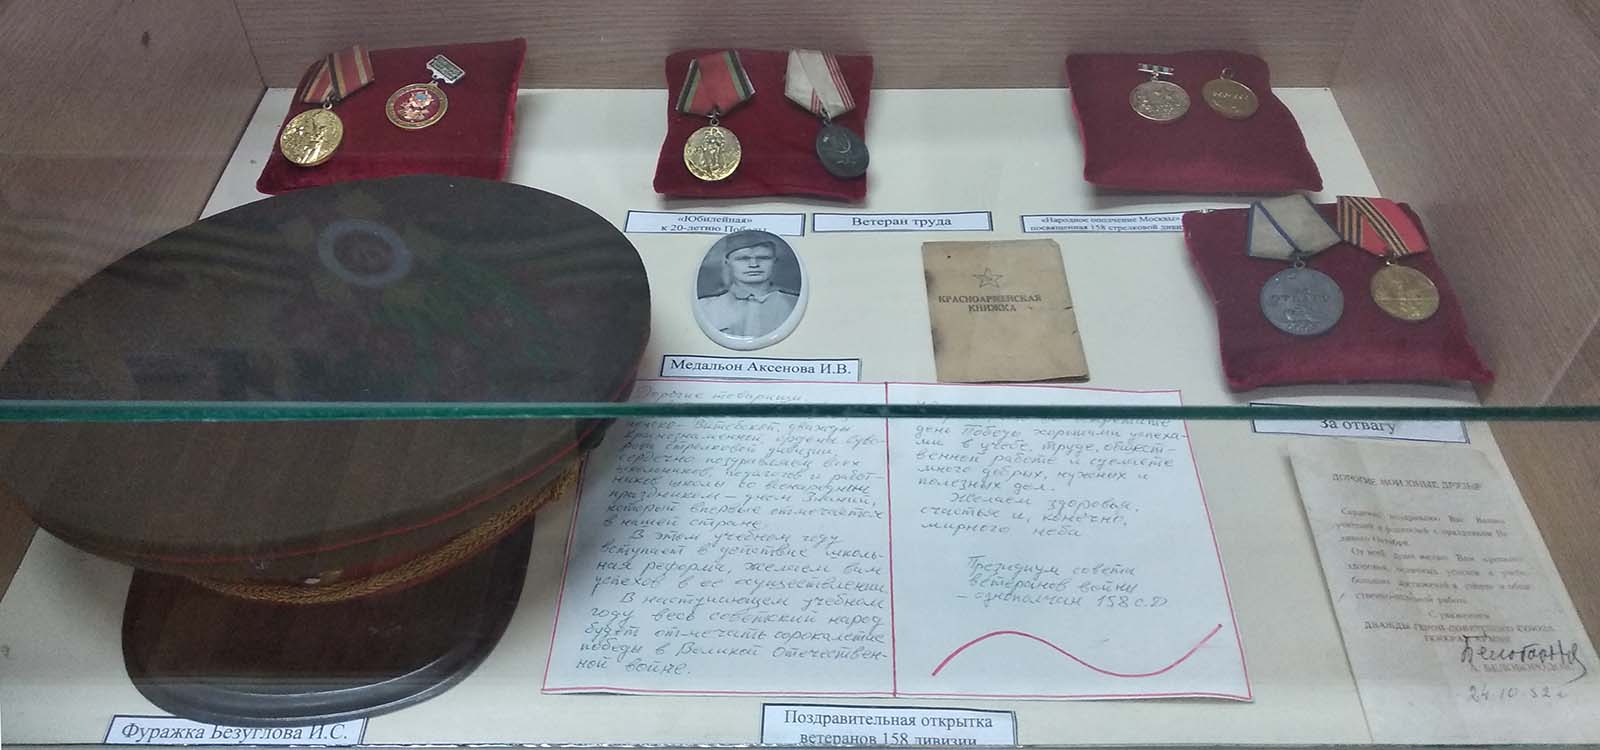 «Юбилейная»
к 20-летию Победы
Ветеран труда
«Народное ополчение Москвы»
посвященная 158 стрелковой
КРАСНОАРМЕЙСКАЯ
КНИЖКА
Медальон Аксенова И.В.
За отвагу
Дорогие товарищи
Витебской, дважды
Краснознаменной, ордена Суво-
рова стрелковой дивизии,
сердечно поздравляем всех
школьников, педагогов и работ-
ников школы со всенародным
праздником — днем Знаний,
который впервые отмечается
в нашей стране.
В этом учебном году
вступает в действие школь-
ная реформа, желаем вам
успехов в ее осуществлении.
В наступающем учебном
году весь советский народ
будет отмечать сорокалетие
победы в Великой Отечествен-
ной войне.
день Победы хорошими успеха-
ми в учебе, труде, общест-
венной работе и сделаете
много добрых, нужных и
полезных дел.
Желаем здоровья,
счастья и, конечно,
мирного неба
Президиум совета
ветеранов войны
– однополчан 158 с.д
ДОРОГИЕ МОИ ЮНЫЕ ДРУЗЬЯ!
Сердечно поздравляю Вас, Ваших
учителей и родителей с праздником Ве-
ликого Октября.
От всей души желаю Вам крепкого
здоровья, отличных успехов в учебе,
больших достижений в спорте и обще-
ственно-полезной работе.
С уважением
ДВАЖДЫ ГЕРОЙ СОВЕТСКОГО СОЮЗА
ГЕНЕРАЛ АРМИИ
А. БЕЛОБОРОДОВ
24.10.82 г
Фуражка Безуглова И.С.
Поздравительная открытка
ветеранов 158 дивизии